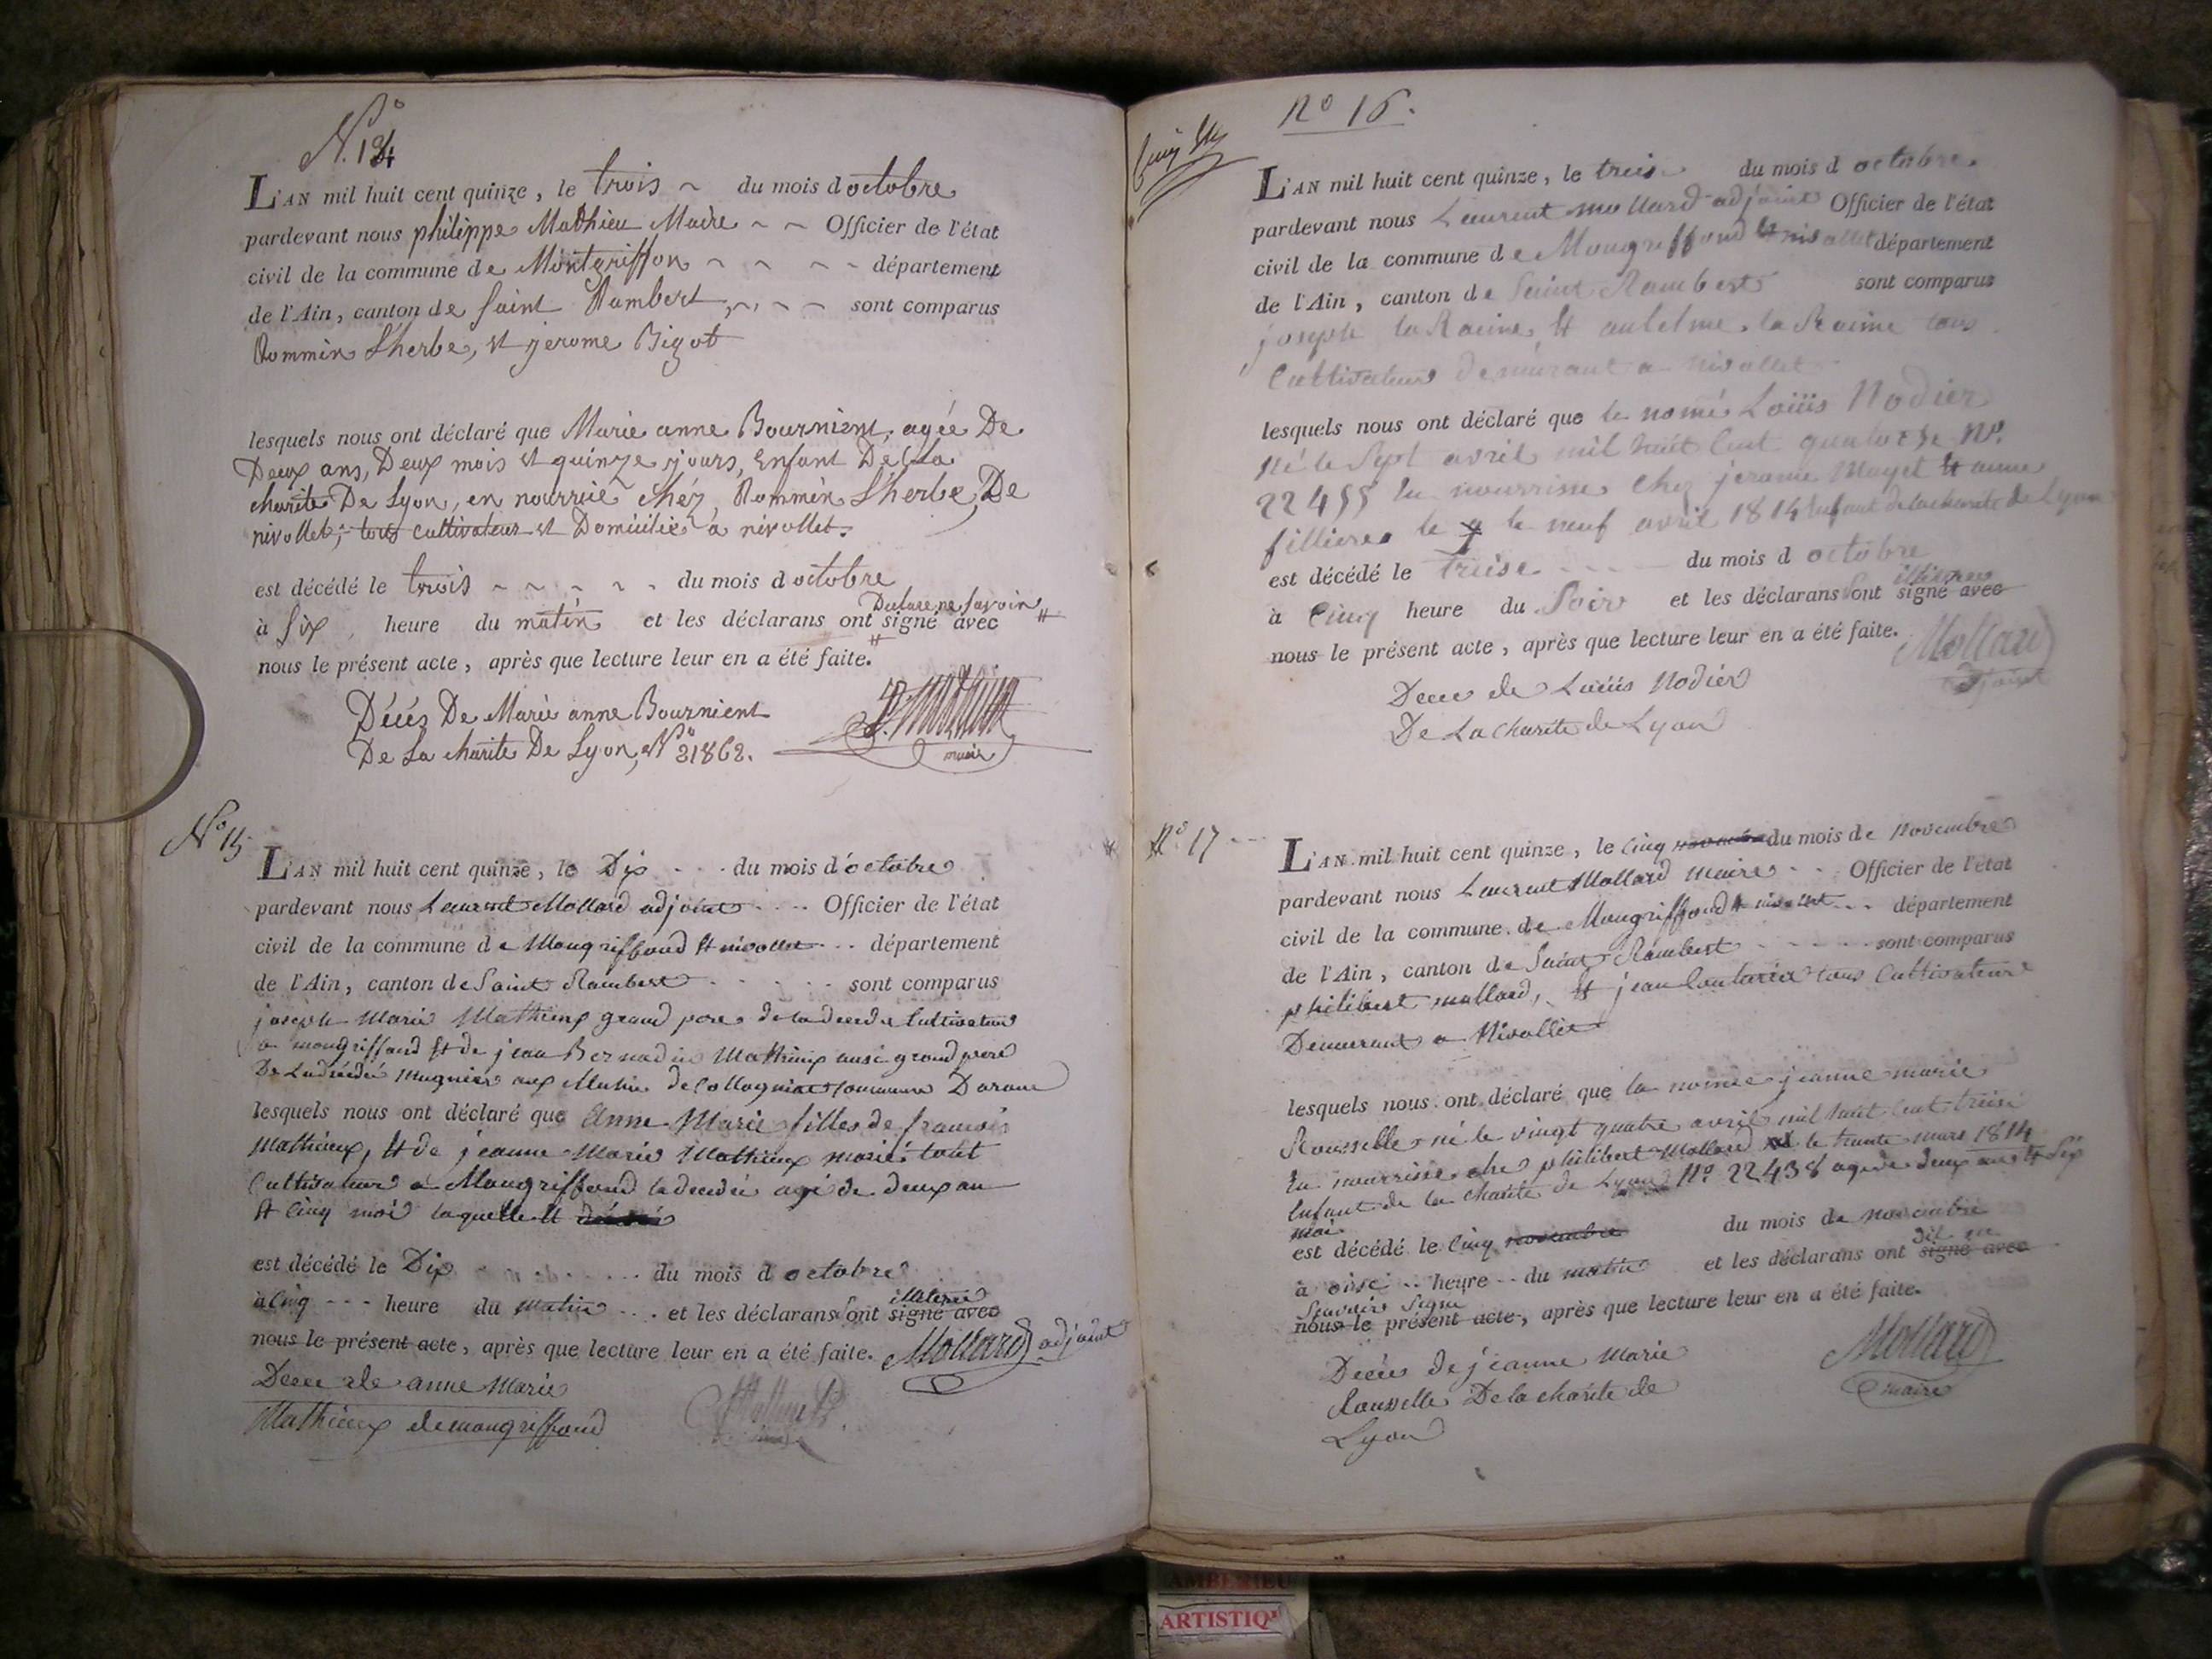 N.° 14
L'AN mil huit cent quinze, le trois ~ du mois d octobre
pardevant nous philippe Mathieu Maire ~ ~ Officier de l'état
civil de la commune de Montgriffon ~ ~ ~ ~ département
de l'Ain, canton de saint Rambert, ~ ~ ~ sont comparus
Rommin L'herbe, et jerome Bigot
lesquels nous ont déclaré que Marie anne Bournient, agée De
Deux ans, Deux mois et quinze jours, Enfant De La
charite De Lyon, en nourrice chéz Rommin L'herbe, De
nivollet, tous cultivateur et Domicilié à nivollet.
est décédé le trois ~ ~ ~ ~ ~ du mois d octobre
Declare ne savoir
à six heure du matin et les déclarans ont signé avec
nous le présent acte, après que lecture leur en a été faite.
Décés De Marie anne Bournient
De La charite De Lyon, N° 21862.
maire
N° 15
L'AN mil huit cent quinze, le Dix - - - du mois d'octobre
pardevant nous Laurent Mollard adjoint - - - Officier de l'état
civil de la commune de Mongriffond et nivollet - - - département
de l'Ain, canton de Saint Rambert - - - - sont comparus
joseph Marie Mathieux grand pere de la decedee Cultivateur
a mongriffond et de jean Bernadin Mathieux ausi grand pere
De La décédée Mugnier aux Mulin de Collognat commune Daranc
lesquels nous ont déclaré que Anne Marie filles de francois
Mathieux, et de jeanne Marie Mathieux marié tout
Cultivateur a Mongriffond la decedee agé de deux an
et cinq moi laquelle et
est décédé le Dix - - - - du mois d octobre
illiteré
à cinq - - - heure du matin - - - et les déclarans Sont signé avec
nous le présent acte, après que lecture leur en a été faite. Mollard adjoint
Dece de anne Marie
Mathieux de mongriffond
N° 16.
L'AN mil huit cent quinze, le treise du mois d octobre
pardevant nous Laurent mollard adjoint Officier de l'état
civil de la commune de Mongriffond et nivollet département
de l'Ain, canton de Saint Rambert sont comparus
joseph la Racine, et antelme la Racine tous
Cultivateur demeurant a nivollet
lesquels nous ont déclaré que le nomé Loüis Nodier
né le Sept avril mil huit cent quatorse N°.
22455 en nourrisse chez jerome Mayet et anne
fillieres le 9 le neuf avril 1814 enfant de la charite de Lyon
est décédé le treise - - - - du mois d octobre
à cinq heure du Soir et les déclarans Sont signé avec
nous le présent acte, après que lecture leur en a été faite. Mollard
adjoint
Dece de Loüis Nodier
De La charite de Lyon
N° 17 - - -
L'AN mil huit cent quinze, le cinq novembre du mois de Novembre
pardevant nous Laurent Mollard maire - - Officier de l'état
civil de la commune de Mongriffond et nivollet - - - département
de l'Ain, canton de Saint Rambert - - - - - sont comparus
philibert mollard, et jean tous Cultivateur
Demeurant a Nivollet
lesquels nous ont déclaré que la nomée jeanne marie
Rousselle né le vingt quatre avril mil huit cent treise
En nourrisse chez philibert Mollard le trante mars 1814
Enfant de la charite de Lyon N° 22438 agé de deux an et Six
moi
est décédé le cinq novembre du mois de novembre
dit ne
à onse - - heure - - du matin et les déclarans ont signé avec
Scavoir Signe
nous le présent acte, après que lecture leur en a été faite.
Décés de jeanne Marie
Rousselle De la charite de
Lyon
Mollard
maire
AMBERIEU
ARTISTIQ